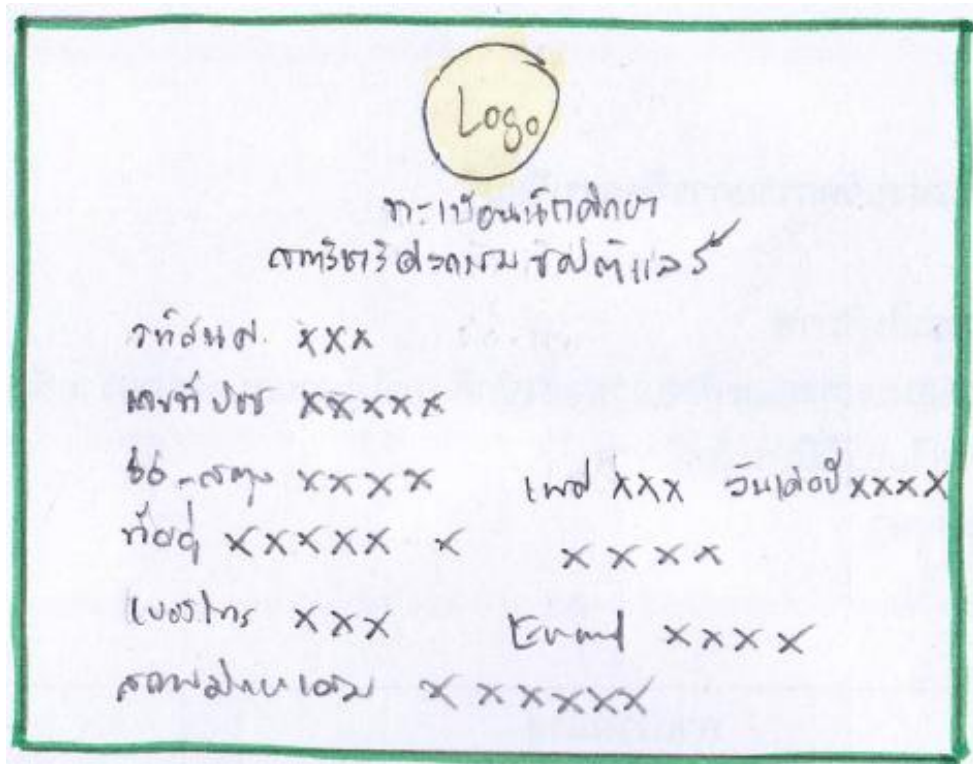 Logo
ทะเบียนนักศึกษา
สาขาวิชาวิศวกรรมซอฟต์แวร์
รหัสนศ. xxx
เลขที่ปชช xxxxx
ชื่อ-สกุล xxxx เพศ xxx วันเดือนปี xxxx
ที่อยู่ xxxxx x xxxx
เบอร์โทร xxx Email xxxx
สถานศึกษาเดิม xxxxxx